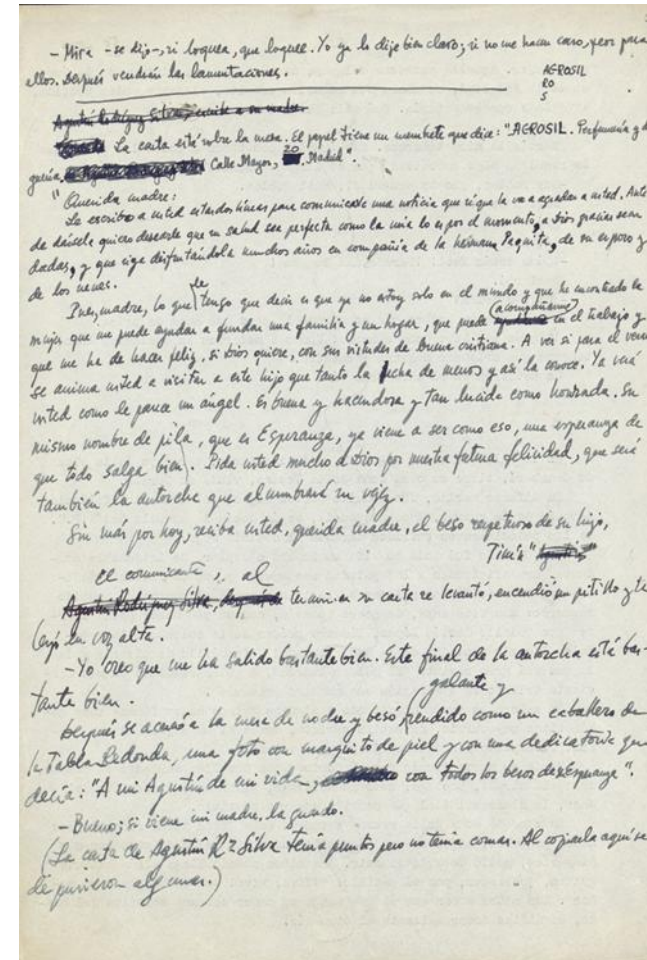 - Mira - se dijo -, si loquea, que loquee. Yo ya lo dije bien claro; si no me hacen caso, peor para
ellos. Después vendrán las lamentaciones.
AGROSIL
RO
S
Agustín Rodríguez Silva, escribe a su madre.
La carta está sobre la mesa. El papel tiene un membrete que dice: "AGROSIL. Perfumería y dro
guería. Calle Mayor, 20, Madrid".
"Querida madre:
Le escribo a usted estas dos líneas para comunicarle una noticia que sé que la va a agradar a usted. Antes
de dársela quiero desearle que su salud sea perfecta como la mía lo es por el momento, a Dios gracias sean
dadas, y que siga disfrutándola muchos años en compañía de la hermana Paquita, de su esposo y
de los nenes.
Pues, madre, lo que le tengo que decir es que ya no estoy solo en el mundo y que he encontrado la
mujer que me puede ayudar a fundar una familia y un hogar, que puede acompañarme en el trabajo y
que me ha de hacer feliz, si Dios quiere, con sus virtudes de buena cristiana. A ver si para el verano
se anima usted a visitar a este hijo que tanto la echa de menos y así la conoce. Ya verá
usted como le parece un ángel. Es buena y hacendosa y tan lucida como honrada. Su
mismo nombre de pila, que es Esperanza, ya viene a ser como eso, una esperanza de
que todo salga bien. Pida usted mucho a Dios por nuestra futura felicidad, que será
también la antorcha que alumbrará su vejez.
Sin más por hoy, reciba usted, querida madre, el beso respetuoso de su hijo,
Tinín" Agustín"
el comunicante, al
Agustín Rodríguez Silva, después de terminar su carta se levantó, encendió un pitillo y la
leyó en voz alta.
- Yo creo que me ha salido bastante bien. Este final de la antorcha está bas-
tante bien.
galante y
Después se acercó a la mesa de noche y besó, rendido como un caballero de
la Tabla Redonda, una foto con marquito de piel y con una dedicatoria que
decía: "A mi Agustín de mi vida, con todos los besos de su Esperanza".
- Bueno; si viene mi madre, la guardo.
(La carta de Agustín Rz Silva tenía puntos pero no tenía comas. Al copiarla aquí se
le pusieron algunas.)